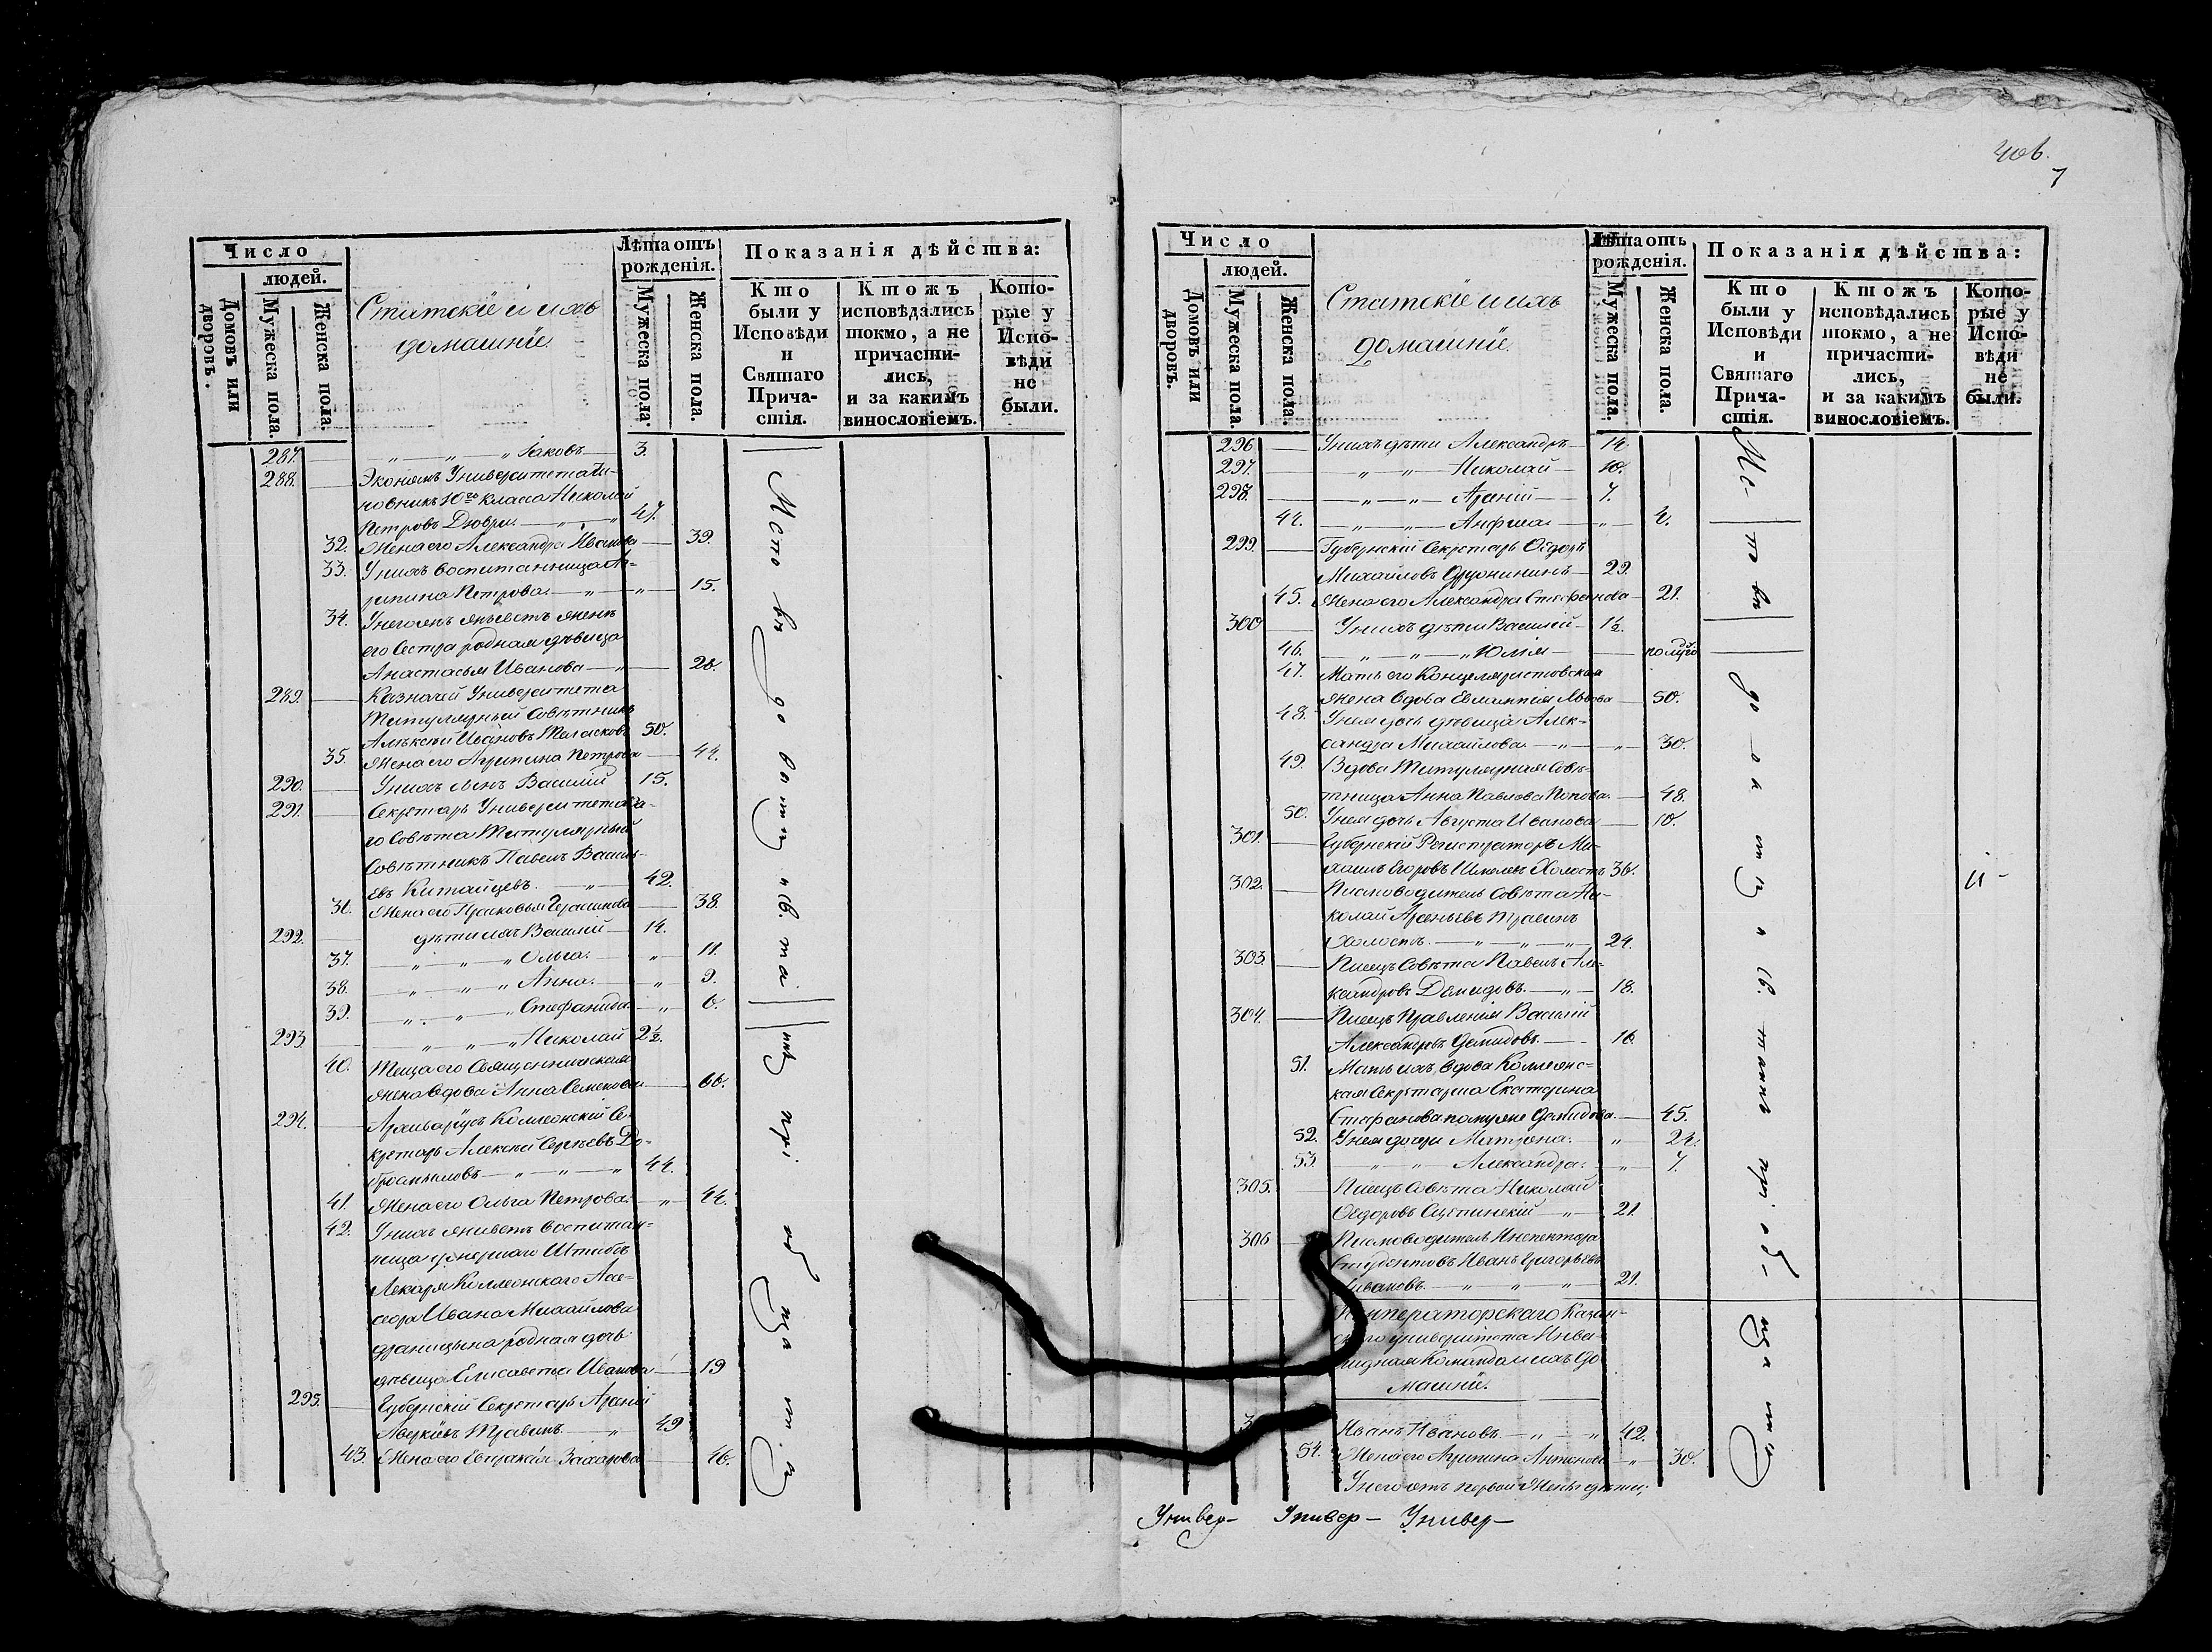 Число
людей.
Домовъ или дворовъ.
Мужеска пола.
Женска пола.
Статскіе и ихъ
домашніе.
Лѣта отъ
рожденія.
Мужеска пола.
Женска пола.
Показанія дѣйства:
Кто
были у
Исповѣди
и
Святаго
Прича-
стія.
Ктожъ
исповѣдались
токмо, а не
причасти-
лись,
и за какимъ
винословіемъ.
Кото-
рые у
Испо-
вѣди
не
были.
287. „ „ „ Іаковъ 3.
288. Экономъ Университета Чи-
новникъ 10го класса Николай
Петровъ „ „ 47.
32. Жена его Александра Иванова 39.
33. У нихъ воспитанница Аг-
рипина Петрова „ „ 15.
34. У него жъ живетъ жены
его Сестра родная дѣвица
Анастасья Иванова „ 28.
289. Казначей Университета
Титулярный Совѣтникъ
Алексѣй Ивановъ 50.
35. Жена его Агрипина Петрова 44.
290. У нихъ сынъ Василій 15.
291. Секретарь Университетска-
го Совѣта Титулярный
Совѣтникъ Павелъ Василь-
евъ Китайцевъ. „ 42.
36. Жена его Прасковья Герасимова 38.
292. дѣти ихъ Василій 14.
37. „ „ „ Ольга. „ 11.
38. „ „ „ Анна. „ 9.
39. „ „ „ Стефанида. „ 6.
293. „ „ „ Николай 2½.
40. Теща его Священническая
жена вдова Анна Семенова 66.
294. Архиваріусъ Коллежскій Се-
кретарь Алексѣй Сергѣевъ До-
„ „ „ 44.
41. Жена его Ольга Петрова. „ 44.
42. У нихъ живетъ воспитан-
ница умершаго Штабъ
Лекаря Коллежскаго Асе-
сора Ивана Михайлова
родная дочь
дѣвица Елисавета Иванова 19
295. Губернскій Секретарь Арсеній
Аверкіевъ Травинъ. „ 49
43. Жена его Евпраксія Захарова 46.
Исповѣдовошѣ и св. таинѣ пріобща шѣ
406.
7
Число
людей.
Домовъ или дворовъ.
Мужеска пола.
Женска пола.
Статскіе и ихъ
домашніе.
Лѣта отъ
рожденія.
Мужеска пола.
Женска пола.
Показанія дѣйства:
Кто
были у
Исповѣди
и
Святаго
Прича-
стія.
Ктожъ
исповѣдались
токмо, а не
причасти-
лись,
и за какимъ
винословіемъ.
Кото-
рые у
Испо-
вѣди
не
были.
296 У нихъ дѣти Александръ 14
297. „ „ Николай 10.
298. „ „ Арсеній 7.
44. „ „ Анфиса „ 4.
299. Губернскій Секретарь Ѳедоръ
Михайловъ 29.
45. Жена его Александра Стефанова 21.
300 У нихъ дѣти Василій 1½.
46. „ „ „ Юлія полуго
47. Мать его Канцеляристовская
жена вдова Евлампія Львова 50.
48. У нея дочь дѣвица Алек-
сандра Михайлова. „ „ 30.
49. Вдова Титулярная Совѣ-
тница Анна Павлова Попова. 48.
50. У нея дочь Августа Иванова 10.
301. Губернскій Регистраторъ Ми-
хаилъ Егоровъ Холостъ 36.
302. Писмоводитель Совѣта Ни-
колай Арсеньевъ Травинъ
Холостъ. „ „ „ 24.
303. Писецъ Совѣта Павелъ Але-
ксандровъ Демидовъ. „ 18.
304. Писецъ Правленія Василій
Александровъ Демидовъ. 16
51. Мать ихъ вдова Коллежс-
кая Секретарша Екатерина
Стефанова помужѣ Демидова. 45.
52. У нея дочери Матрона. „ 24.
53. „ „ Александра. „ 7.
305. Писецъ Совѣта Николай
Ѳедоровъ „ 21.
306 Писмоводитель Инспектора
Студентовъ Иванъ Григорьевъ
Ивановъ. „ „ „ 21.
Императорскаго Казан-
скаго университета Инва-
лидная Команда и ихъ до
машніе.
Иванъ Ивановъ. „ „ 42.
54. Жена его Агрипина Антонова „ 30.
У него отъ первой жены дѣти;
Универ- Универ- Универ-